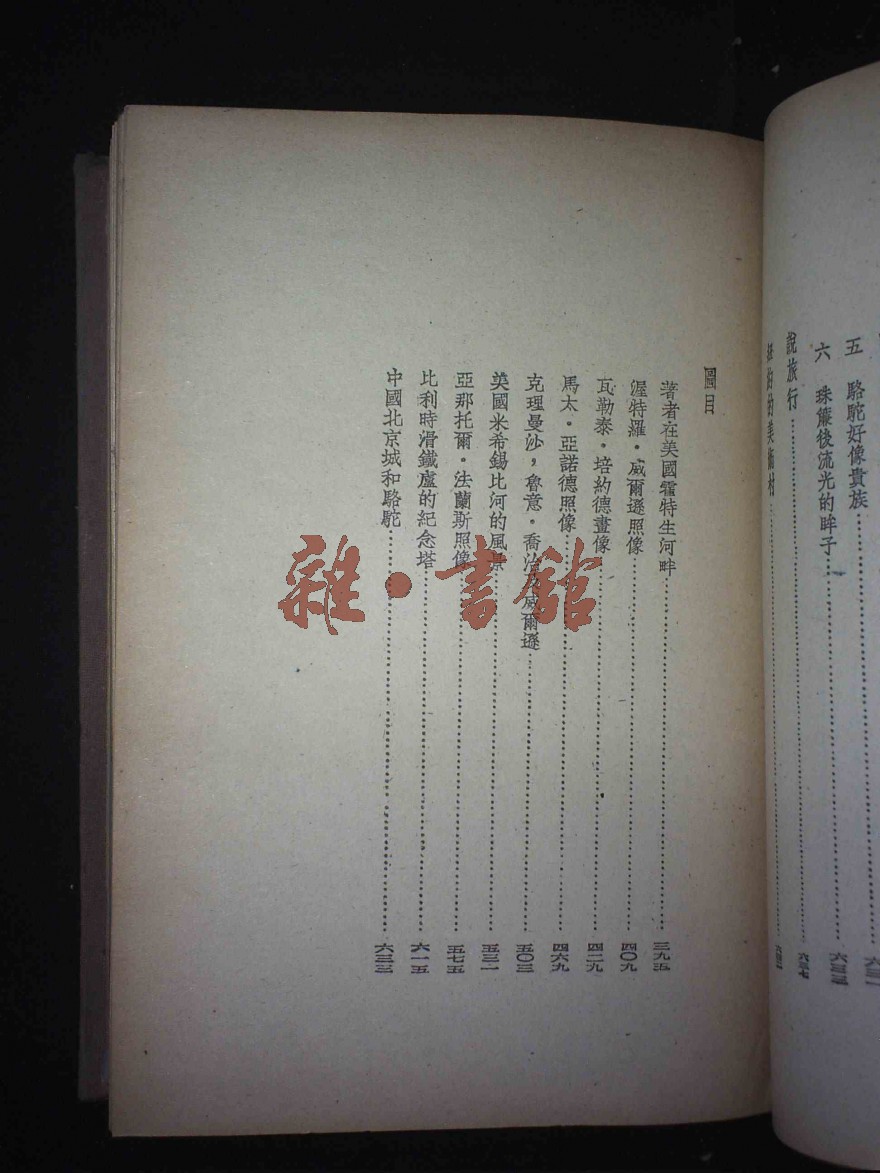 五　駱駝好像貴族
六　珠簾後流光的眸子 六三三
說旅行 六三七
的美術村
圖目
著者在美國霍特生河畔 三九五
渥特羅・威爾遜照像 四〇九
瓦勒泰・培約德畫像 四二九
馬太・亞諾德照像 四六九
克理曼沙，魯意・喬治及威爾遜 五〇三
美國米希錫比河的風景 五三一
亞那托爾・法蘭斯照像 五七五
比利時滑鐵盧的紀念塔 六一五
中國北京城和駱駝 六三三
雜・書館